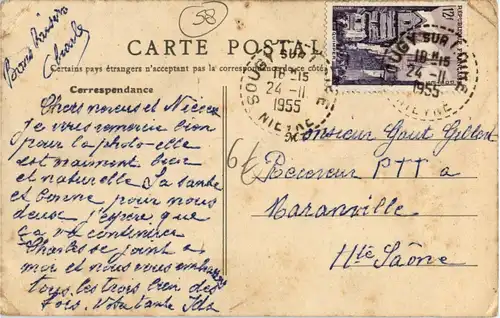 58
Bons Baisers
CARTE POSTALE
Certains pays étrangers n'acceptent pas la correspondance de ce côté
12F
SOUGY SUR LOIRE
18-15
24-11
1955
NIEVRE
SOUGY SUR LOIRE
18-15
24-11
1955
NIEVRE
Correspondance
Chers neveus et Nièces
je vous remercie bien
pour la photo elle
est vraiment bien
et naturelle La santé
est bonne pour nous
deux j'espère que
ça va continuer
Charles se joint a
moi et nous vous embrassons
tous les trois bien des
fois. Votre tante Ida
6f
Monsieur
Receveur PTT a
Maranville
Hte Saône